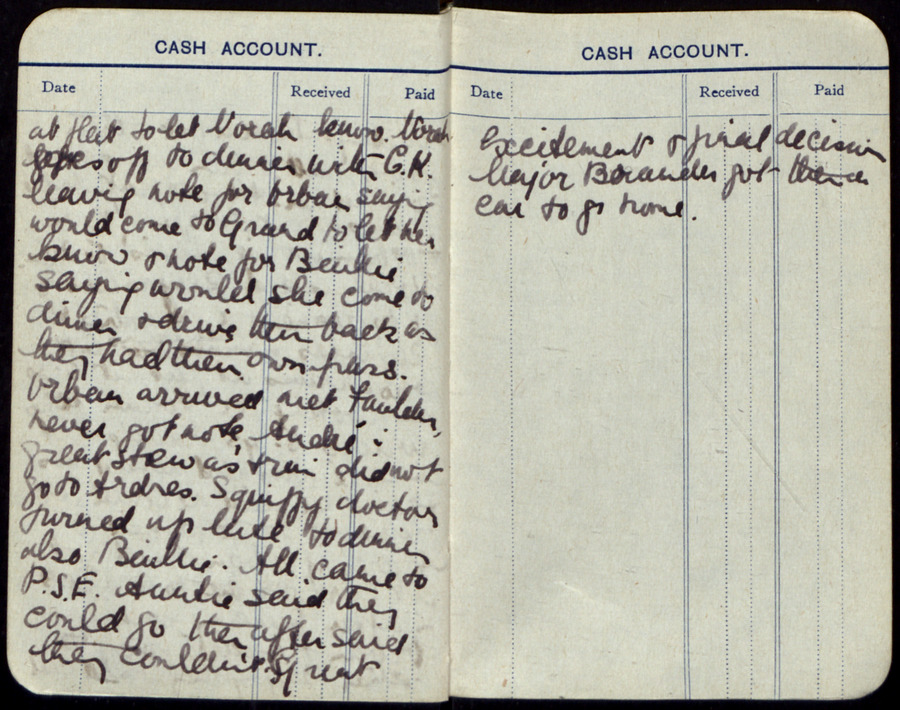 CASH ACCOUNT.
Date Received Paid
at flat to let Norah know. Norah
goes off to dinner with G.K.
leaving note for Urban saying
would come to Grand to let her
know & note for Beukie
saying would she come to
dinner & drive them back as
they had their own pass.
Urban arrived met
never got note André :
great stew as train did not
go to Ardres. Squiffy doctor
turned up late to dinner
also Beukie. All came to
P.S.E. Auntie said they
could go then after said
they couldn't. Great
CASH ACCOUNT.
Date Received Paid
Excitement & final decision
Major got
car to go home.